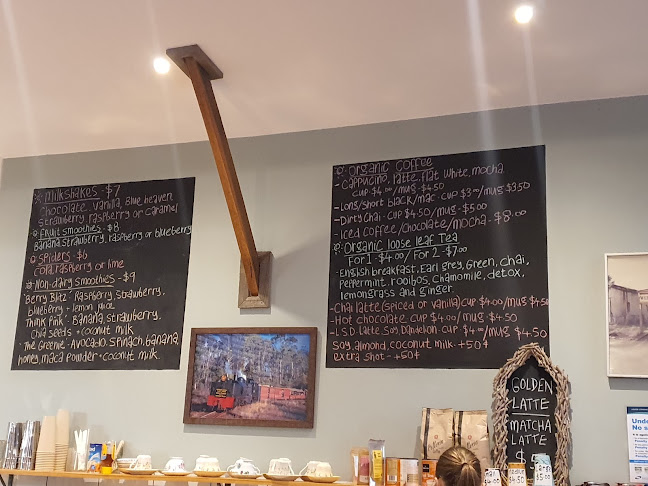 Milkshakes - $7
Chocolate, Vanilla, Blue heaven,
Strawberry, raspberry or caramel
Fruit smoothies - $8
Banana, strawberry, raspberry or blueberry
Spiders - $6
Cola, raspberry or lime
Non-dairy smoothies - $9
'Berry Blitz' Raspberry, Strawberry,
blueberry + lemon juice.
'Think Pink': Banana, strawberry,
chia seeds + coconut milk
'The Greenie' - Avocado, spinach, banana,
honey, maca powder + coconut milk.
Organic Coffee
- Cappucino, latte, flat white, mocha
cup $4.00/mug - $4.50
- Long/short black/mac - cup $3.00/mug $3.50
- Dirty Chai - cup $4.50/mug - $5.00
- Iced coffee/chocolate/mocha - $8.00
Organic loose leaf Tea
For 1 - $4.00/ For 2 - $7.00
- English breakfast, Earl grey, Green, chai,
Peppermint, rooibos, chamomile, detox,
lemongrass and ginger
- Chai latte (spiced or vanilla) cup $4.00/mug $4.50
- Hot chocolate cup $4.00/mug - $4.50
- L.S.D. Latte, Soy, Dandelion - cup $4.00/mug $4.50
Soy, almond, coconut milk - +50¢
extra shot - +50¢
GOLDEN
LATTE
MATCHA
LATTE
$